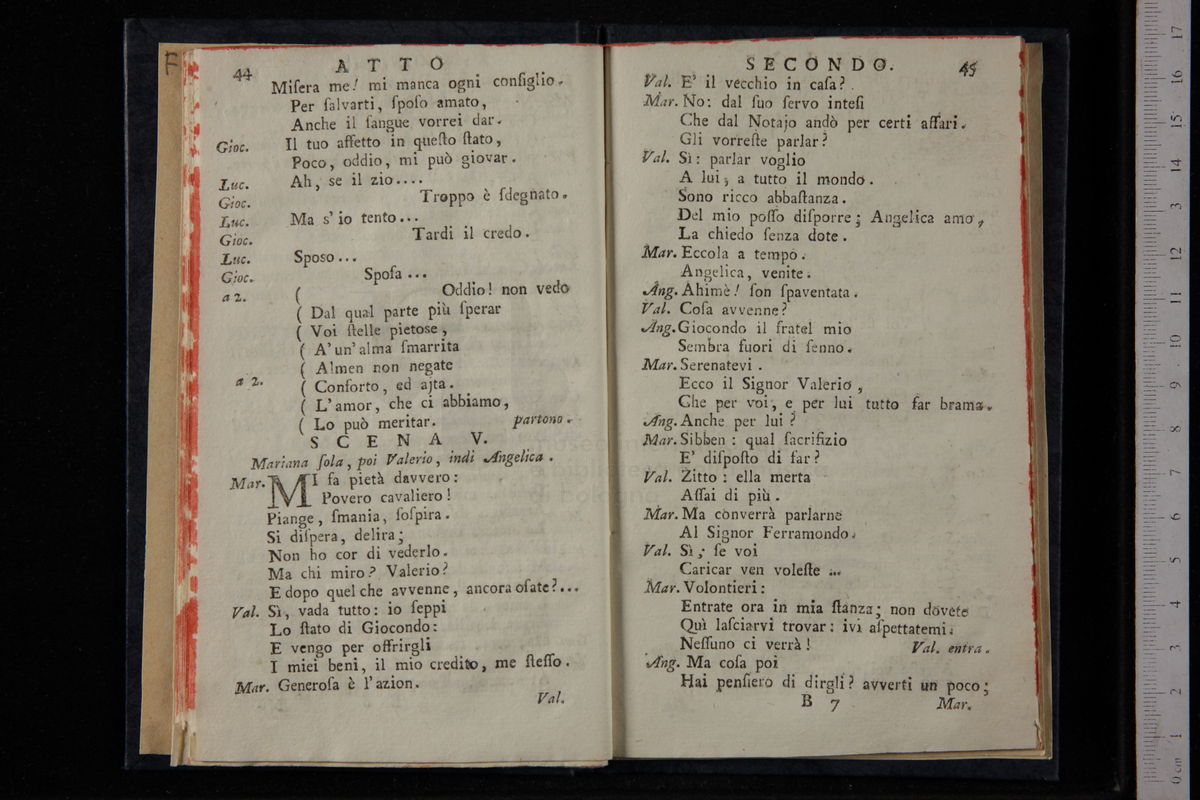 F
44
ATTO
Miſera me! mi manca ogni conſiglio.
Per ſalvarti, ſpoſo amato,
Anche il ſangue vorrei dar.
Gioc. Il tuo affetto in queſto ſtato,
Poco, oddio, mi può giovar.
Luc. Ah, se il zio....
Gioc. Troppo è ſdegnato.
Luc. Ma s'io tento...
Gioc. Tardi il credo.
Luc. Sposo...
Gioc. Spoſa...
a 2. ( Oddio! non vedo
( Dal qual parte più ſperar
( Voi ſtelle pietose,
( A' un'alma ſmarrita
( Almen non negate
a 2. ( Conforto, ed ajta.
( L'amor, che ci abbiamo,
( Lo può meritar. partono.
SCENA V.
Mariana ſola, poi Valerio, indi Angelica.
Mar. MI fa pietà davvero:
Povero cavaliero!
Piange, ſmania, ſoſpira.
Si diſpera, delira;
Non ho cor di vederlo.
Ma chi miro? Valerio?
E dopo quel che avvenne, ancora oſate?...
Val. Sì, vada tutto: io ſeppi
Lo ſtato di Giocondo:
E vengo per offrirgli
I miei beni, il mio credito, me ſteſſo.
Mar. Generoſa è l'azion.
Val.
SECONDO.
45
Val. E' il vecchio in caſa?
Mar. No: dal ſuo ſervo inteſi
Che dal Notajo andò per certi affari.
Gli vorreſte parlar?
Val. Sì: parlar voglio
A lui, a tutto il mondo.
Sono ricco abbaſtanza.
Del mio poſſo diſporre; Angelica amo,
La chiedo ſenza dote.
Mar. Eccola a tempo.
Angelica, venite.
Ang. Ahimè! ſon ſpaventata.
Val. Coſa avvenne?
Ang. Giocondo il fratel mio
Sembra fuori di ſenno.
Mar. Serenatevi.
Ecco il Signor Valerio,
Che per voi, e per lui tutto far brama.
Ang. Anche per lui?
Mar. Sibben: qual ſacrifizio
E' diſpoſto di far?
Val. Zitto: ella merta
Aſſai di più.
Mar. Ma converrà parlarne
Al Signor Ferramondo.
Val. Sì; ſe voi
Caricar ven voleſte ...
Mar. Volontieri:
Entrate ora in mia ſtanza; non dovete
Quì laſciarvi trovar: ivi aſpettatemi.
Neſſuno ci verrà! Val. entra.
Ang. Ma coſa poi
Hai penſiero di dirgli? avverti un poco;
B 7 Mar.